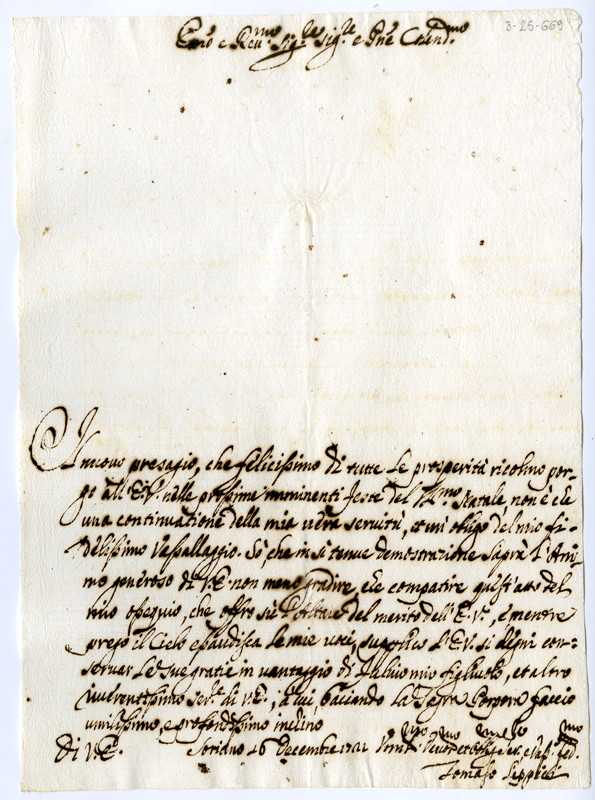 3-25-669
Emo e Reu.mo Sig.re Sig.re e Pne Colend.mo
Il nuouo presagio, che felicissimo di tutte le prosperità ricolmo por-
go all' E.V. nelle prossime imminenti feste del SS.mo Natale, non è che
una continuatione della mia uera seruitù, et un obligo del mio fi-
delissimo Vassallaggio. Sò, che in sì tenue demostrazione saprà l'Ani-
mo generoso di V.E. non meno gradire, che compatire quest'atto del
mio ossequio, che offro sù l'Altare del merito dell' E.V., e mentre
prego il Cielo esaudisca le mie uoci, supplico l'E.V. si degni con-
seruar le sue gratie in uantaggio di mio figliuolo, et altro
riuerentissimo ser.e di V.E.; à cui, baciando la Sagra Porpora faccio
umilissimo, e profondissimo inchino
di V.E. Soriano 16 Decembre 1721
Tomaso